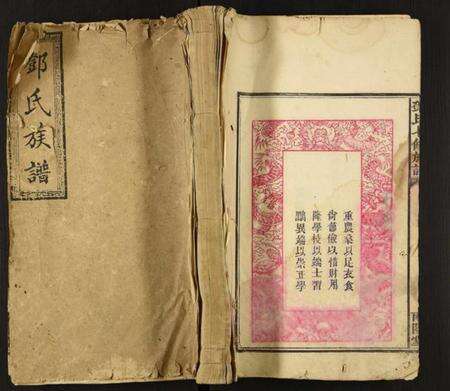 鄧氏族譜
鄧氏七修族譜
南陽堂
重農桑以足衣食
尚節儉以惜財用
隆學校以端士習
黜異端以崇正學